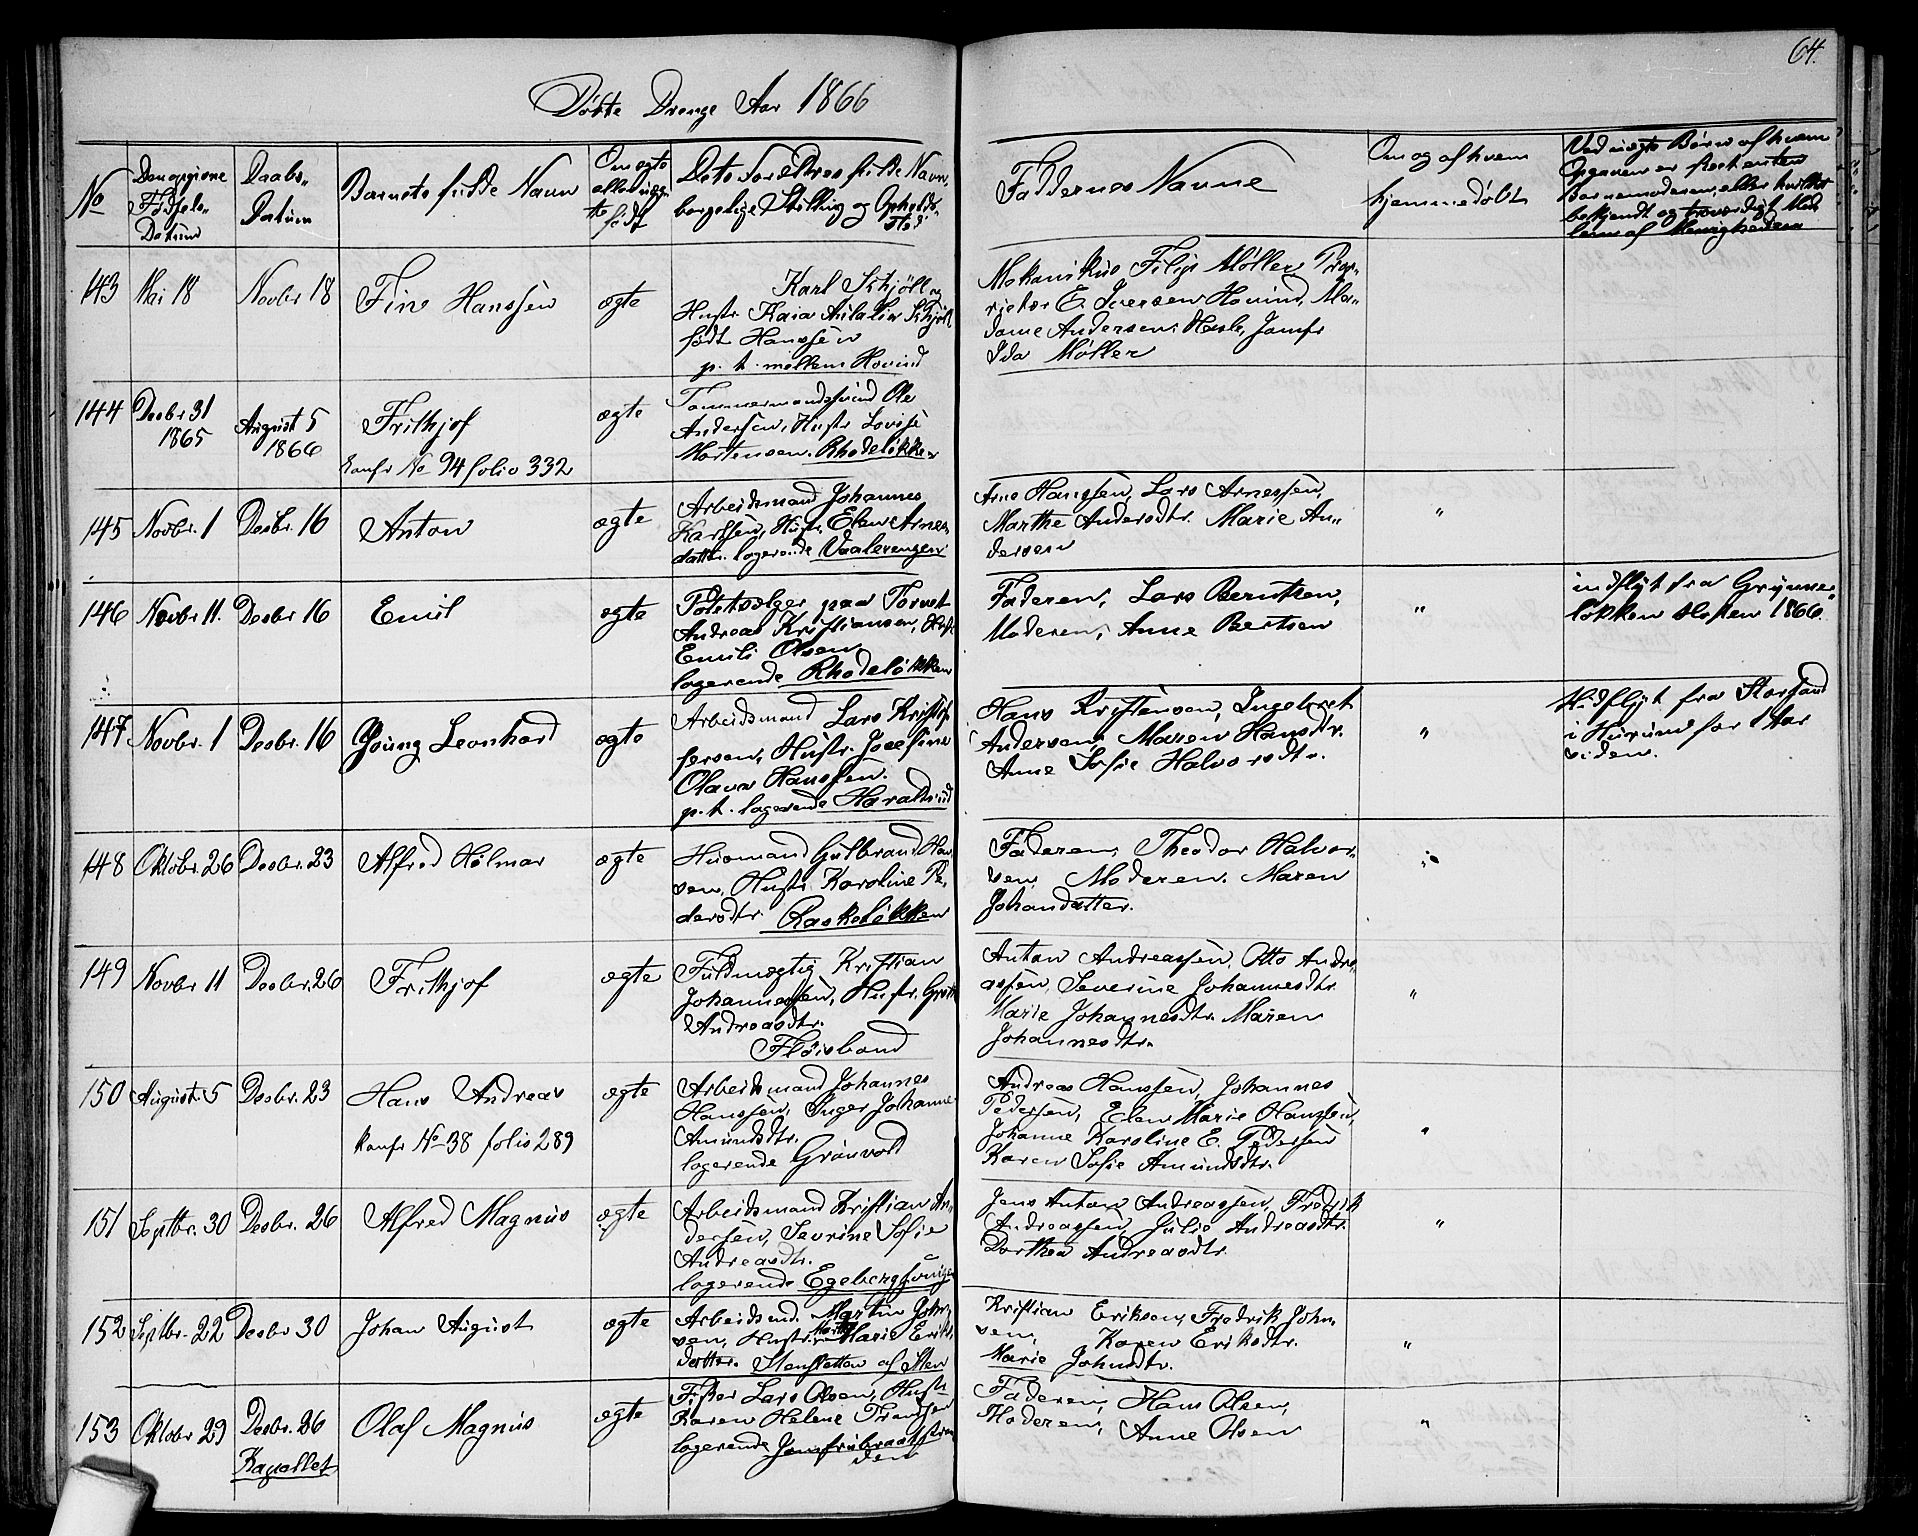 64.
Døbte Drenge Aar 1866
No
Den opgivne Fødsels-Datum
Daabs-Datum
Barnets fulde Navn
Om ægte eller uægte født
Dets Forældres fulde Navn, borgelige Stilling og Opholds-Sted
Faddernes Navne
Om og af hvem hjemmedøbt
Ved uægte Børn af hvem Opgaven er sket enten Barnemoderen, eller hvilket bekjendt og troværdigt Medlem af Menigheden
143 Mai 18 Novbr 18 Fin Hanssen ægte
Karl Schjöll og
Hustr. Kaia Schjöll
født Hanssen
p. t. mellem Hovind
Mekanikus Filip Møller, Prop-
rietær E. Iversen Hovind, Ma-
dame Andersen, Hasle, Jomfr
Ida Møller
144 Desbr 31 1865 August 5 1866 Frithjof ægte
konfr No 94 folio 332
Tømmermandssvend Ole
Andersen, Hustr Lovise
Mortensen. Rhodeløkken
145 Novbr. 1 Desbr. 16 Anton ægte
Arbeidsmand Johannes
Karlsen, Hustr. Elen Arnes
datter. logerende Vaalerengen
Arne Hanssen, Lars Arnessen,
Marthe Andersdtr. Marie An-
dersen
"
146 Novbr 11. Desbr 16 Emil ægte
Potetsælger paa Torvet
Andreas Kristiansen, Hustr
Emili Olsen
logerende Rhodeløkken
Faderen, Lars Berntsen,
Moderen, Anne Bertsen
"
indflyt fra Grynne-
løkken Høsten 1866.
147 Novbr. 1 Desbr. 16 Young Leonhard ægte
Arbeidsmand Lars Kristof-
fersen, Hustr. Josefine
Olava Hanssen.
p. t. logerende Haralsrud
Hans Kristensen, Ingebret
Andersen, Maren Hansdtr.
Anne Sofie Halvorsdtr.
"
Hidflyt fra Storsand
i Hurum for 1 Aar
siden.
148 Oktobr. 26 Desbr. 23 Alfred Hølmar ægte
Husmand Gulbrand Han
sen, Hustr. Karoline Pe-
dersdtr. Raskeløkken
Faderen, Theodor Halvor-
sen, Moderen. Maren
Johansdatter.
"
149 Novbr 11 Desbr. 26 Frithjof ægte
Fuldmægtig Kristian
Johannessen, Hustr.
Andreasdtr.
Fløisbond
Anton Andreassen, Otto Andre-
assen, Severine Johannesdtr.
Marie Johannesdtr. Maren
Johannesdtr.
"
150 August 5 Desbr. 23 Hans Andreas ægte
konfr No 38 folio 289
Arbeidsmand Johannes
Hanssen, Inger Johanne
Amundsdtr.
logerende Grönvold
Andreas Hanssen, Johannes
Pedersen, Elen Marie Hanssen,
Johanne Karoline E. Pedersen
Karen Sofie Amundsdtr.
"
151 Septbr. 30 Desbr. 26 Alfred Magnus ægte
Arbeidsmand Kristian An-
dersen, Sevrine Sofie
Andreasdtr.
logerende Egeberg
Jens Anton Andreassen, Fredrik
Andreassen, Julie Andreasdtr.
Dorthea Andreasdtr.
"
152 Septbr. 22 Desbr 30 Johan August ægte
Arbeidsmd. Martin John-
sen, Hustr. Marie Eriks-
datter. Stensletten af Sten
Kristian Eriksen, Fredrik John-
sen, Karen Eriksdtr.
Marie Johnsdtr.
"
153 Oktobr 29 Desbr. 26 Olaf Magnus ægte
Kapellet
Fisker Lars Olsen, Hustr
Karen Helene Frandsen
logerende Jomfrubraatstran
den
Faderen, Hans Olsen,
Moderen, Anne Olsen
"